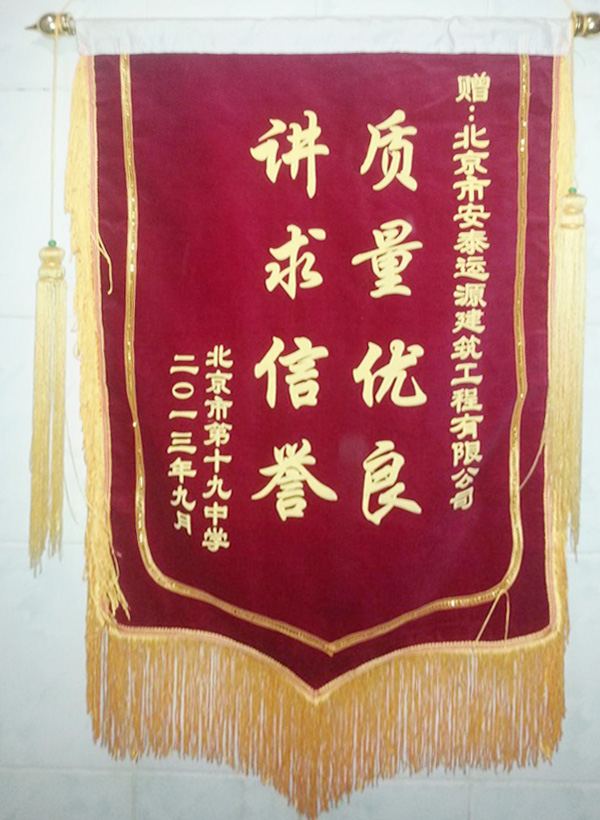 赠:北京市安泰运源建筑工程有限公司
质量优良
讲求信誉
北京市第十九中学
二〇一三年九月